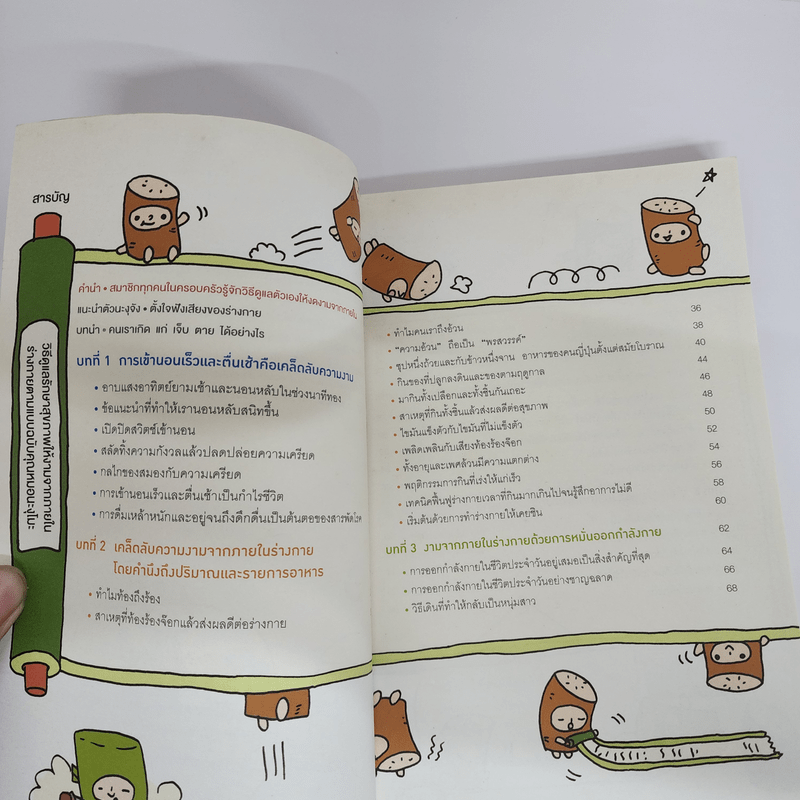 สารบัญ
วิธีดูแลรักษาสุขภาพให้งามจากภายใน
ร่างกายตามแบบฉบับคุณหมอนะงุโมะ
คำนำ • สมาชิกทุกคนในครอบครัวรู้จักวิธีดูแลตัวเองให้งดงามจากภายใน
แนะนำตัวนะงุจัง • ตั้งใจฟังเสียงของร่างกาย
บทนำ • คนเราเกิด แก่ เจ็บ ตาย ได้อย่างไร
บทที่ 1 การเข้านอนเร็วและตื่นเช้าคือเคล็ดลับความงาม
• อาบแสงอาทิตย์ยามเช้าและนอนหลับในช่วงนาทีทอง
• ข้อแนะนำที่ทำให้เรานอนหลับสนิทขึ้น
• เปิดปิดสวิตช์เข้านอน
• สลัดทิ้งความกังวลแล้วปลดปล่อยความเครียด
• กลไกของสมองกับความเครียด
• การเข้านอนเร็วและตื่นเช้าเป็นกำไรชีวิต
• การดื่มเหล้าหนักและอยู่จนถึงดึกดื่นเป็นต้นตอของสารพัดโรค
บทที่ 2 เคล็ดลับความงามจากภายในร่างกาย
โดยคำนึงถึงปริมาณและรายการอาหาร
• ทำไมท้องถึงร้อง
• สาเหตุที่ท้องร้องจ๊อกแล้วส่งผลดีต่อร่างกาย
• ทำไมคนเราถึงอ้วน 36
• "ความอ้วน" ถือเป็น "พรสวรรค์" 38
• ซุปหนึ่งถ้วยและกับข้าวหนึ่งจาน อาหารของคนญี่ปุ่นตั้งแต่สมัยโบราณ 40
• กินของที่ปลูกลงดินและของตามฤดูกาล 44
• มากินทั้งเปลือกและทั้งชิ้นกันเถอะ 46
• สาเหตุที่กินทั้งชิ้นแล้วส่งผลดีต่อสุขภาพ 48
• ไขมันแข็งตัวกับไขมันที่ไม่แข็งตัว 50
• เพลิดเพลินกับเสียงท้องร้องจ๊อก 52
• ทั้งอายุและเพศล้วนมีความแตกต่าง 54
• พฤติกรรมการกินที่เร่งให้แก่เร็ว 56
• เทคนิคฟื้นฟูร่างกายเวลาที่กินมากเกินไปจนรู้สึกอาการไม่ดี 58
• เริ่มต้นด้วยการทำร่างกายให้เคยชิน 60
บทที่ 3 งามจากภายในร่างกายด้วยการหมั่นออกกำลังกาย 62
• การออกกำลังกายในชีวิตประจำวันอยู่เสมอเป็นสิ่งสำคัญที่สุด 64
• การออกกำลังกายในชีวิตประจำวันอย่างชาญฉลาด 66
• วิธีเดินที่ทำให้กลับเป็นหนุ่มสาว 68